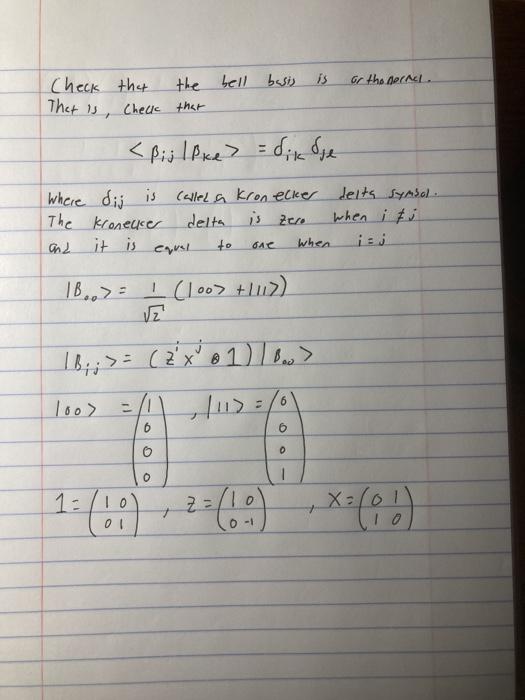 Check that the bell basis is orthonormal.
That is, check that
<βij|βkl> = δik δjl
where δij is called a kronecker delta symbol.
The kronecker delta is zero when i ≠ j
and it is equal to one when i = j
|B₀₀> = 1/√2 (|00> + |11>)
|Bij> = (zⁱxʲ ⊗ 1)|B₀₀>
|00> = (1 0 0 0), |11> = (0 0 0 1)
1 = (1 0 0 1), z = (1 0 0 -1), X = (0 1 1 0)